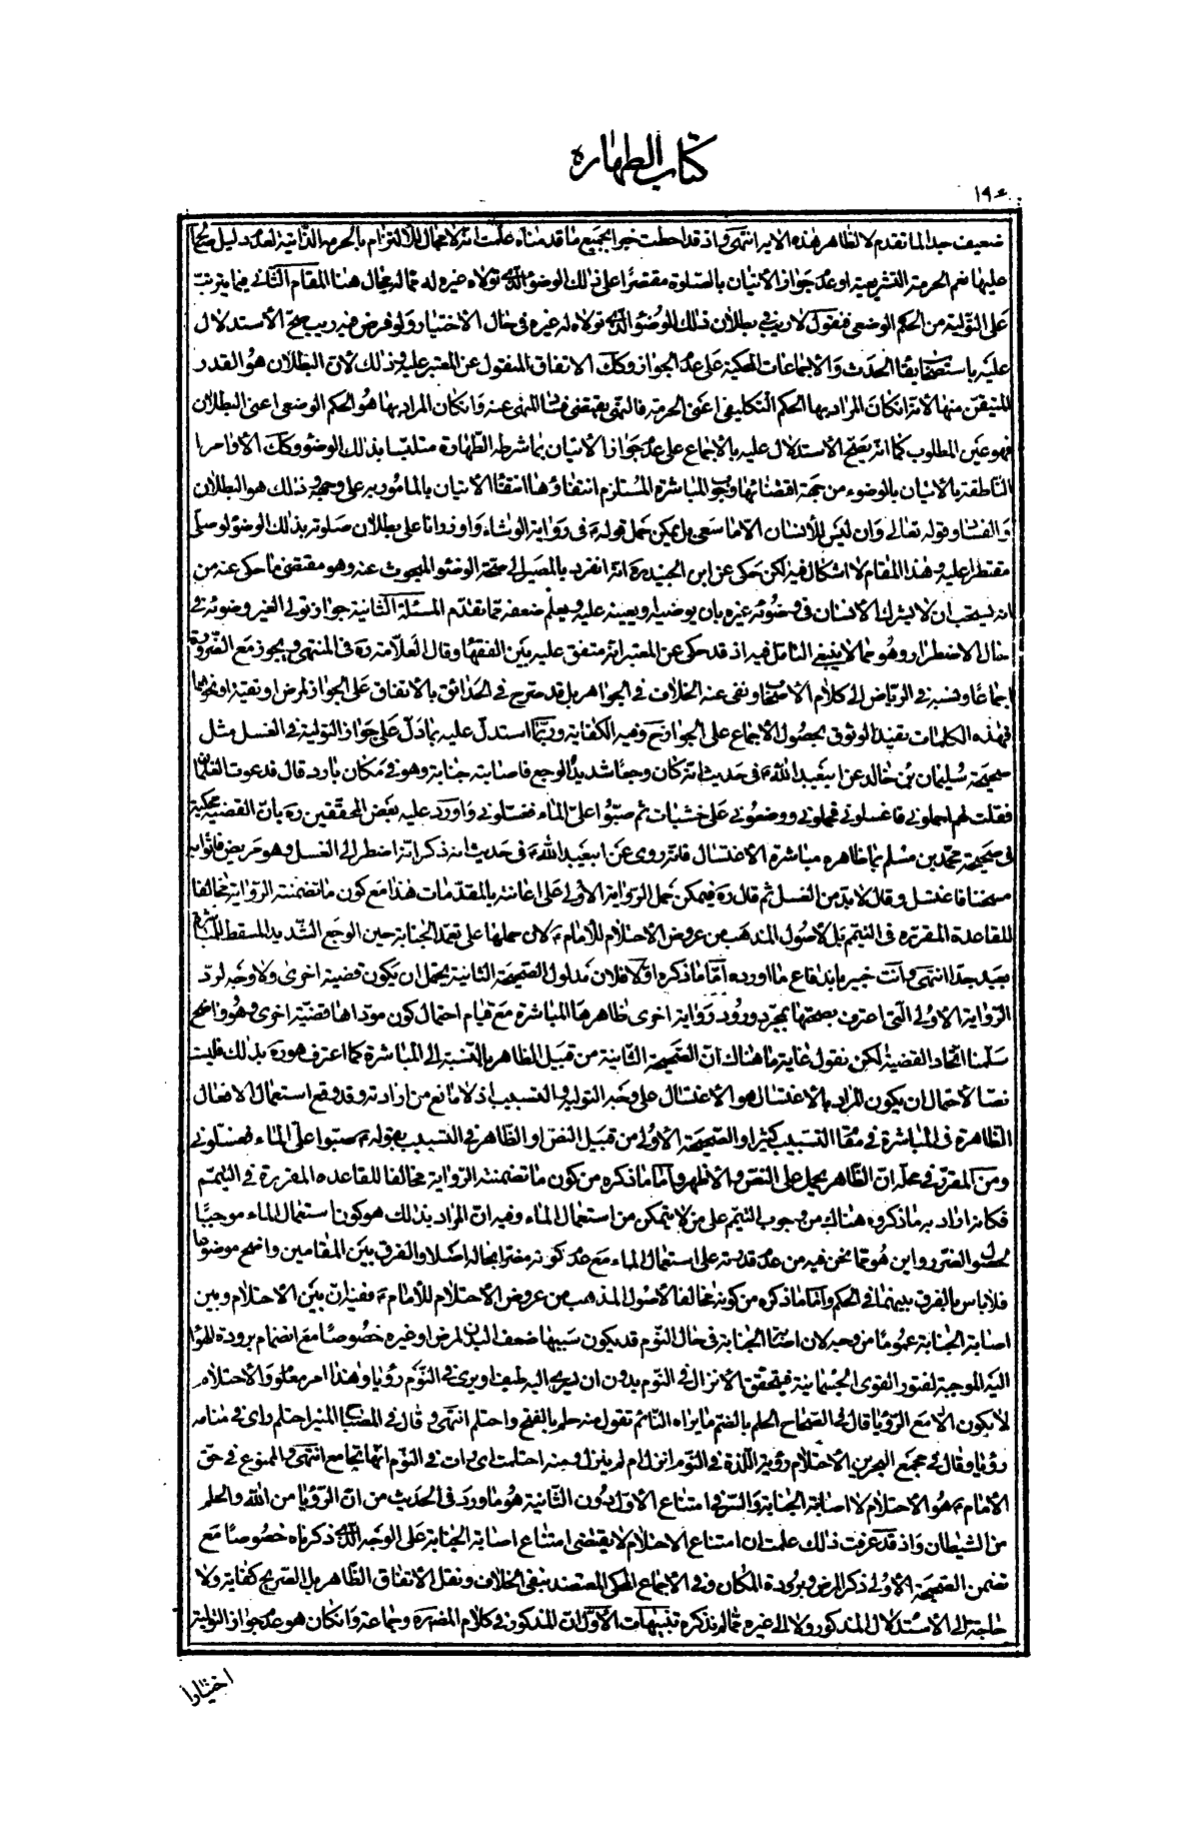 كتاب الطهارة
١٩٤
ضعيف جدا لما تقدم لا لظاهر هذه الاية انتهى واذ قد احطت خبرا بجميع ما قدمناه علمت انه لا مجال للالتزام بالحرمة الذاتية لعدم دليل
عليها نعم الحرمة التشريعية او عدم جواز الأتيان بالصلوة مقتصرا على ذلك الوضوء الذي تولاه غيره له مما له مجال هنا المقام الثاني فيما يترتب
على التولية من الحكم الوضعي فنقول لا ريب في بطلان ذلك الوضوء الذي تولاه له غيره في حال الأختيار ولو فرض فيه ريب صح الأستدلال
عليه باستصحاب بقاء الحدث والأجماعات المحكية على عدم الجواز وكك الاتفاق المنقول عن المعتبر عليه وذلك لان البطلان هو القدر
المتيقن منها لانه ان كان المراد بها الحكم التكليفي اعنى الحرمة فالنهي يقتضى فساد المنهى عنه وان كان المراد بها هو الحكم الوضعي اعنى البطلان
فهو عين المطلوب كما انه يصح الأستدلال عليه بالأجماع على عدم جواز الأتيان بما شرطه الطهارة متلبسا بذلك الوضوء وكك الأوامر
الناطقة بالاتيان بالوضوء من جهة اقتضائها وجوب المباشرة المستلزم انتفاؤها انتفاء الأتيان بالمأمور به على وجهه وذلك هو البطلان
والفساد وقوله تعالى وان ليس للأنسان الا ما سعى بل يمكن حمل قوله ع في رواية الوشاء واوزر انا على بطلان صلوته بذلك الوضوء لو صلى
مقتصرا عليه وهذا المقام لا اشكال فيه لكن حكى عن ابن الجنيد ره انه انفرد بالمصير الى صحة الوضوء المبحوث عنه وهو مقتضى ما حكى عنه من
انه يستحب ان لا يشرك الانسان في وضوئه غيره بان يوضيه او يعينه عليه ويعلم ضعفه مما تقدم المسئلة الثانية جواز تولى الغير وضوئه في
حال الاضطرار وهو مما لا ينبغي التامل فيه اذ قد حكى عن المعتبر انه متفق عليه بين الفقهاء وقال العلامة ره في المنتهى ويجوز مع الضرورة
اجماعا ونسبه في الرياض الى كلام الأصحاب ونفى عنه الخلاف في الجواهر بل قد صرح في الحدائق بالاتفاق على الجواز لمرض او تقية او نحوهما
فهذه الكلمات تفيد الوثوق بحصول الأجماع على الجواز ح وفيه الكفاية وربما استدل عليه بما دل على جواز التولية في الغسل مثل
صحيحة سليمان بن خالد عن ابيعبد الله ع في حديث انه كان وجعا شديد الوجع فاصابته جنابة وهو في مكان بارد قال فدعوت الغلمان
فقلت لهم احملوني فاغسلوني فحملوني ووضعوني على خشبات ثم صبوا على الماء فغسلوني واورد عليه بعض المحققين ره بان القضية محكية
في صحيحة محمد بن مسلم بما ظاهره مباشرة الاغتسال فانه روى عن ابيعبد الله ع في حديث انه ذكر انه اضطر الى الغسل وهو مريض فاتوا به
مسخنا فاغتسل وقال لا بد من الغسل ثم قال ره فيمكن حمل الرواية الأولى على اعانته بالمقدمات هذا مع كون ما تضمنته الرواية مخالفا
للقاعدة المقررة في التيمم بل لاصول المذهب من عروض الاحتلام للأمام ع لان حملها على تعمد الجنابة حين الوجع الشديد المسقط
بعيد جدا انتهى وانت خبير باندفاع ما اورده اما ما ذكره اولا فلان مدلول الصحيحة الثانية يحتمل ان يكون قضية اخرى ولا وجه لرد
الرواية الاولى التي اعترف بصحتها بمجرد ورود رواية اخرى ظاهرها المباشرة مع قيام احتمال كون مودّاها قضيّة اخرى وهو واضح
سلمنا اتحاد القضية لكن نقول غاية ما هناك ان الصحيحة الثانية من قبيل الظاهر بالنسبة الى المباشرة كما اعترف هو ره بذلك فليست
نصا لأحتمال ان يكون المراد بالاغتسال هو الأغتسال على وجه التولية والتسبيب اذ لا مانع من ارادته وقد وقع استعمال الافعال
الظاهرة في المباشرة في مقام التسبيب كثيرا والصحيحة الاولى من قبيل النص او الظاهر في التسبيب بقوله ع صبوا على الماء فغسلوني
ومن المقرر في محله ان الظاهر يحمل على النص والاظهر واما ما ذكره من كون ما تضمنته الرواية مخالفا للقاعده المقررة في التيمم
فكانه اراد به ما ذكروه هناك من وجوب التيمم على من لا يتمكن من استعمال الماء وفيه ان المراد بذلك هو كون استعمال الماء موجبا
لحصول الضرر واين هو مما نحن فيه من عدم قدرته على استعمال الماء مع عدم كونه مضرا بحاله اصلا والفرق بين المقامين واضح موضوعا
فلا باس بالفرق بينهما في الحكم واما ما ذكره من كونه مخالفا لأصول المذهب من عروض الأحتلام للأمام ع ففيه ان بين الأحتلام وبين
اصابة الجنابة عموما من وجه لان اصابة الجنابة في حال النوم قد يكون سببها ضعف البدن لمرض او غيره خصوصا مع انضمام برودة الهواء
اليه الموجبة لفتور القوى الجسمانية فيتحقق الأنزال في النوم بدون ان يجيء اليه طيف او يرى في النوم رؤيا وهذا امر معلوم والأحتلام
لا يكون الا مع الرؤيا قال في الصحاح الحلم بالضم ما يراه النائم تقول منه حلم بالفتح واحتلم انتهى وقال في المصباح المنير احتلم راى في منامه
رؤيا وقال في مجمع البحرين الأحتلام رؤية اللذة في النوم انزل ام لم ينزل ومنه احتلمت اى رات في النوم انها تجامع انتهى والممنوع في حق
الأمام ع هو الأحتلام لا اصابة الجنابة والسر في امتناع الأول دون الثانية هو ما ورد في الحديث من ان الرؤيا من الله والحلم
من الشيطان واذ قد عرفت ذلك علمت ان امتناع الاحتلام لا يقتضى امتناع اصابة الجنابة على الوجه الذي ذكرناه خصوصا مع
تضمن الصحيحة الأولى ذكر المرض وبرودة المكان وفي الأجماع المحكى المعتضد بنفى الخلاف ونقل الأتفاق الظاهر بل الصريح كفاية ولا
حاجة الى الأستدلال المذكور ولا الى غيره مما لم نذكره تنبيهات الأول ان المذكور في كلام المصنف ره وجماعة وان كان هو عدم جواز التولية
اختيارا